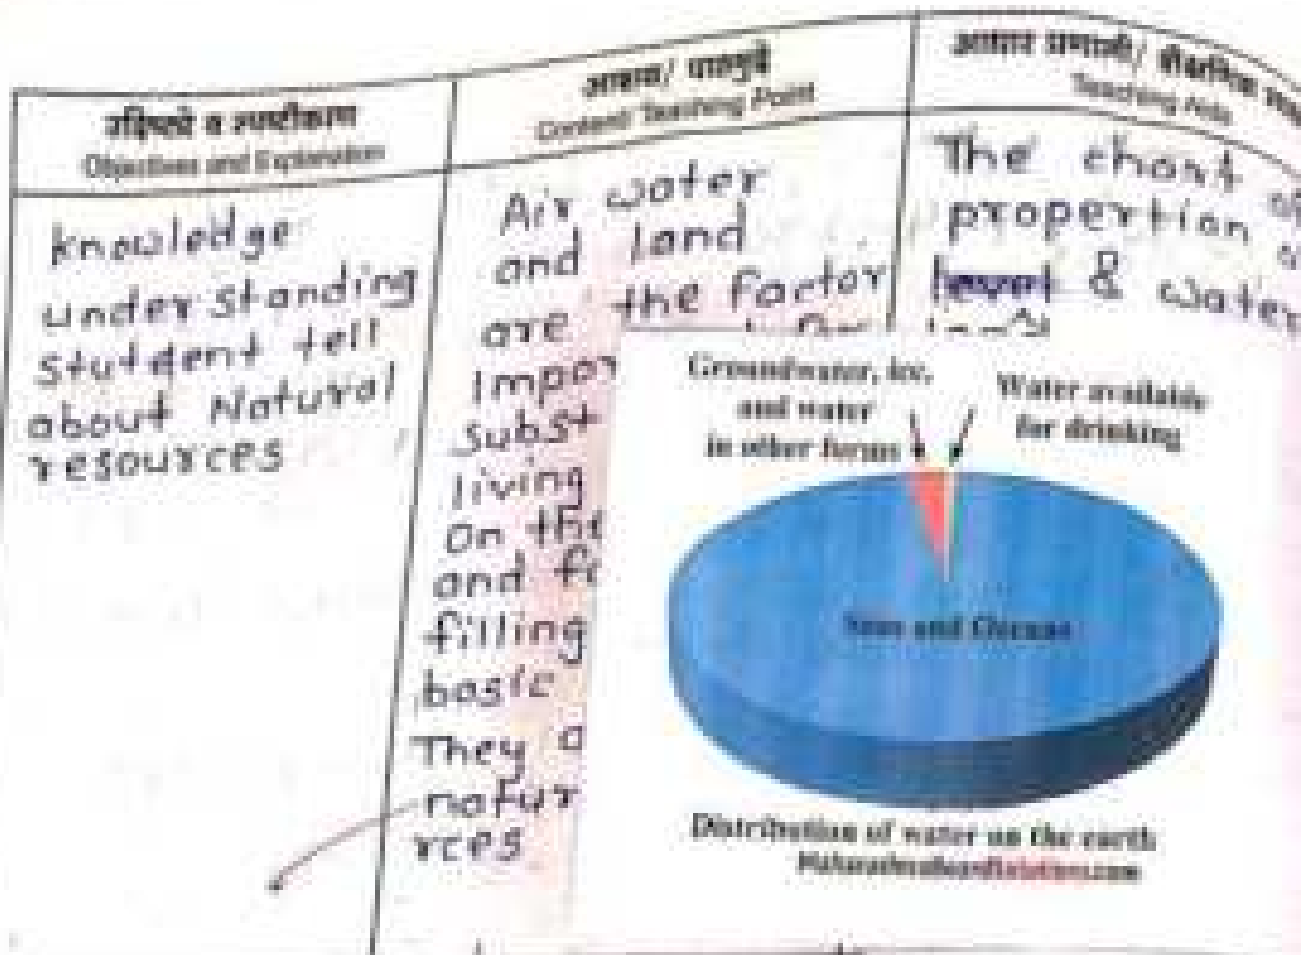 उद्दिष्टे व स्पष्टीकरण
Objectives and Explanation
आशय/ पाठ्यमुद्दे
Content/ Teaching Point
आधार प्रणाली/ शैक्षणिक
Teaching Aids
knowledge
understanding
stutdent tell
about Natural
resources
Air water
and land
are the factor
impor
subst
living
on the
and fu
filling
basic
They a
natur
rces
The chart of
propertion
level & water
land
Groundwater, ice,
and water
in other forms
Water available
for drinking
Seas and Oceans
Distribution of water on the earth
MaharashtraBoardSolutions.com